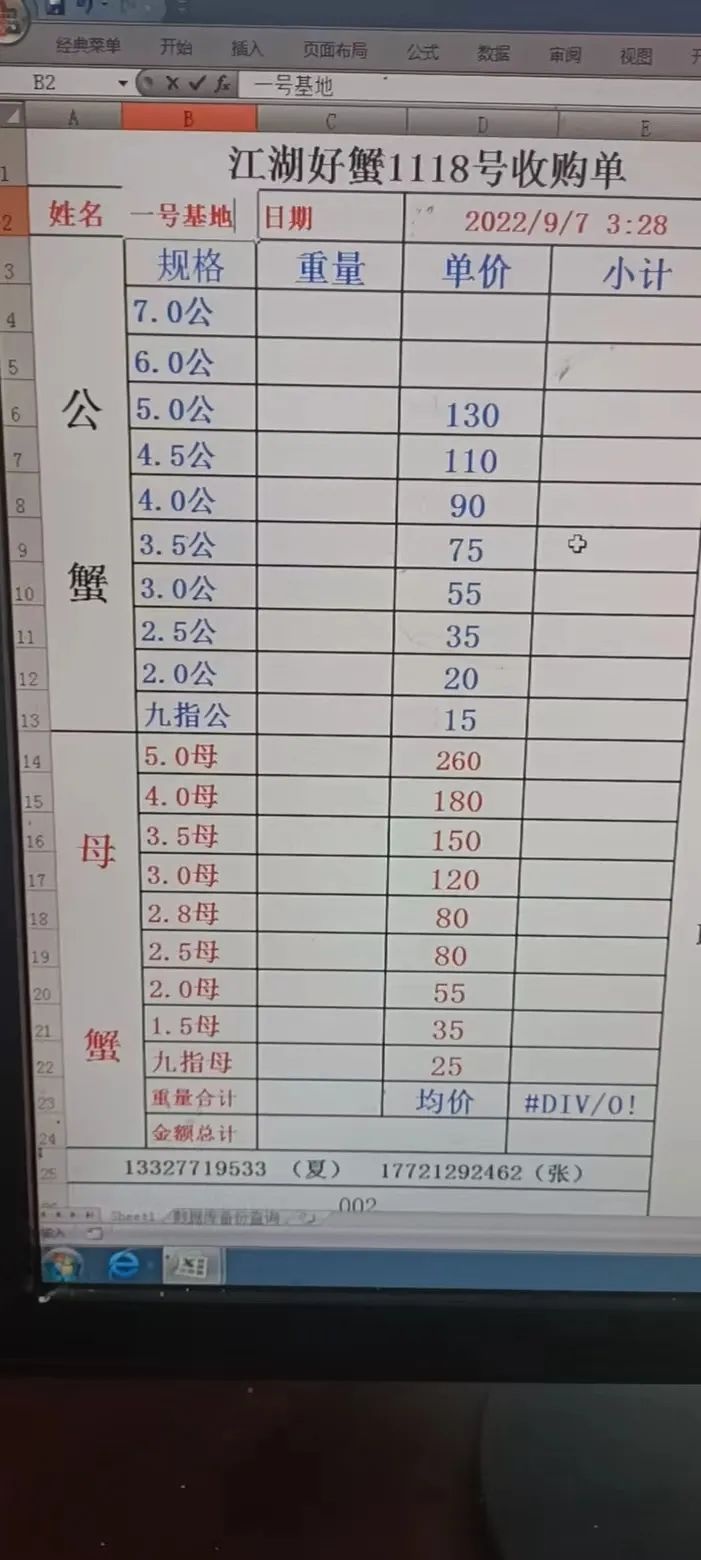 经典菜单 开始 插入 页面布局 公式 数据 审阅 视图
B2 fx 一号基地
A B C D E
1 江湖好蟹1118号收购单
2 姓名 一号基地 日期 2022/9/7 3:28
3 规格 重量 单价 小计
4 7.0公
5 6.0公
公
6 5.0公 130
7 4.5公 110
8 4.0公 90
9 3.5公 75
蟹
10 3.0公 55
11 2.5公 35
12 2.0公 20
13 九指公 15
14 5.0母 260
15 4.0母 180
母
16 3.5母 150
17 3.0母 120
18 2.8母 80
19 2.5母 80
20 2.0母 55
蟹
21 1.5母 35
22 九指母 25
23 重量合计 均价 #DIV/0!
24 金额总计
25 13327719533 （夏） 17721292462（张）
002
Sheet1 数据库备份查询
输入